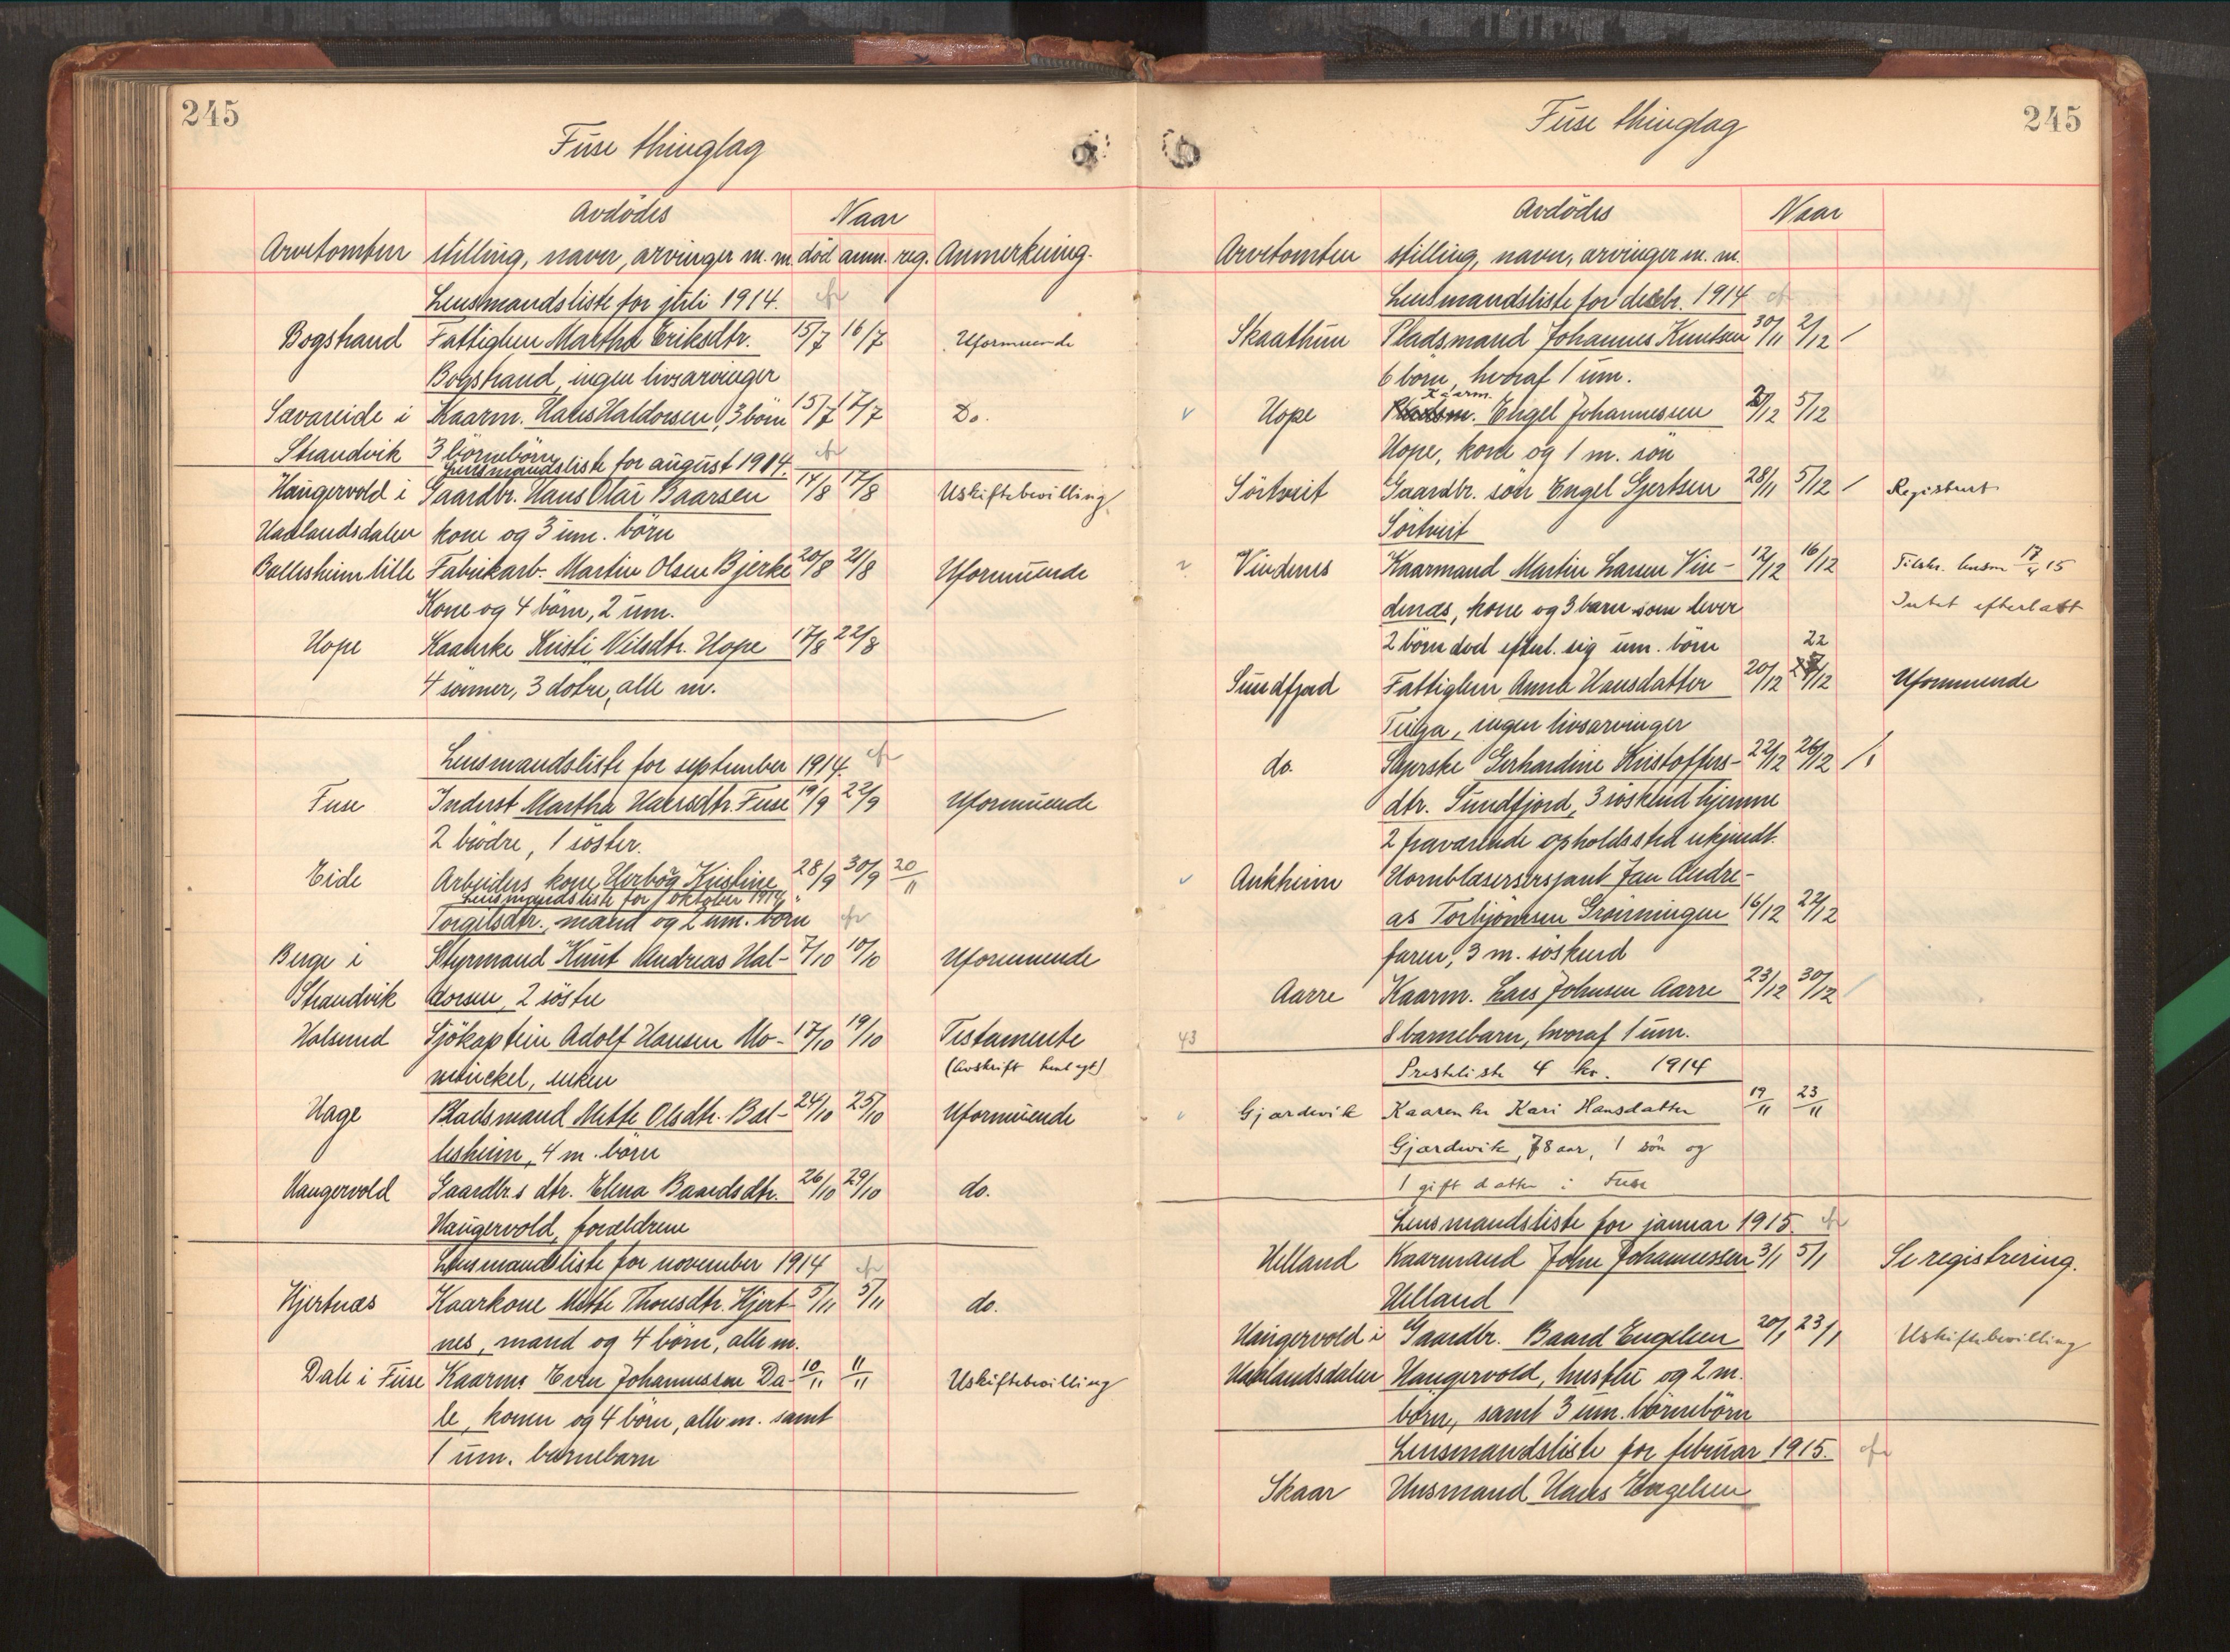 245
Fuse thinglag
Avdödes Naar
Arvetomten stilling, navn, arvinger m. m. död anm. reg. Anmerkning.
Lensmandsliste for juli 1914.
Bogstrand Fattiglem Martha Eriksdtr. 15/7 16/7 Uformuende
Bogstrand, ingen livsarvinger
Sævareide i Kaarm. Hans Haldorsen, 3 börn 15/7 17/7 Do.
Strandvik 3 börnebörn
Lensmandsliste for august 1914.
Haugervold i Gaardbr. Hans Olai Baarsen 14/8 17/8 Uskiftebevilling
Haalandsdalen kone og 3 um. börn
Ballesheim lille Fabrikarb. Martin Olsen Bjerke 20/8 21/8 Uformuende
Kone og 4 börn, 2 um.
Hope Kaarenke Kristi Nilsdtr. Hope 17/8 22/8
4 sönner, 3 dötre, alle m.
Lensmandsliste for september 1914.
Fuse Inderst Martha Haersdtr. Fuse 19/9 22/9 Uformuende
2 brödre, 1 söster.
Eide Arbeiders kone Herbög Kristine 28/9 30/9 20/11
Lensmandsliste for oktober 1914.
Torgilsdtr., mand og 2 um. börn
Berge i Styrmand Knut Andreas Hal- 7/10 10/10 Uformuende
Strandvik dorsen, 2 söstre
Holsund Sjökaptein Adolf Hansen Mo- 17/10 19/10 Testamente
winckel, enken (Avskrift henlagt)
Hage Pladsmand Mette Olsdtr. Bal- 24/10 25/10 Uformuende
lesheim, 4 m. börn
Haugervold Gaardbr.s dtr. Elena Baardsdtr. 26/10 29/10 do.
Haugervold, forældrene
Lensmandsliste for november 1914
Hjertnæs Kaarkone Mette Thorsdtr. Hjert- 5/11 5/11 do.
nes, mand og 4 börn, alle m.
Dale i Fuse Kaarm. Even Johannessen Da- 10/11 11/11 Uskiftebevilling
le, konen og 4 börn, alle m. samt
1 um. barnebarn
245
Fuse thinglag
Avdödes Naar
Arvetomten stilling, navn, arvinger m. m.
Lensmandsliste for decbr. 1914
Skaathun Pladsmand Johannes Knutsen 30/11 2/12
6 börn, hvoraf 1 um.
Kaarm.
Hope Engel Johannessen 2/12 5/12
Hope, kone og 1 m. sön
Sörtveit Gaardbr. sön Engel Gjertsen 28/11 5/12 Registrert
Sörtveit
Vindenes Kaarmand Martin Larsen Vin- 12/12 16/12 Tilskr. lensm 17/4 15
denæs, kone og 3 barn som lever Intet efterlatt
2 börn död efterl. sig um. börn 22
Sundfjord Fattiglem Anna Hansdatter 20/12 /12 Uformuende
Teiga, ingen livsarvinger
do. Syerske Gerhardine Kristoffers- 22/12 26/12
dtr. Sundfjord, 3 söskend hjemme
2 fraværende opholdssted ukjendt.
Aukheim Hornblæsersersjant Jan Andre-
as Torbjörnsen Gröinningen 16/12 22/12
faren, 3 m. söskend
Aarre Kaarm. Lars Johnsen Aarre 23/12 30/12
43 8 barnebarn, hvoraf 1 um.
Presteliste 4 kv. 1914
Gjærdevik Kaarenke Kari Hansdatter 19/11 23/11
Gjærdevik, 78 aar, 1 sön og
1 gift datter i Fuse
Lensmandsliste for januar 1915.
Helland Kaarmand John Johannessen 3/1 5/1 Se registrering.
Helland
Haugervold i Gaardbr. Baard Engelsen 20/1 23/1 Uskiftebevilling
Haalandsdalen Haugervold, hustru og 2 m.
börn, samt 3 um. börnebörn
Lensmandsliste for februar 1915.
Skaar Husmand Hans Engelsen